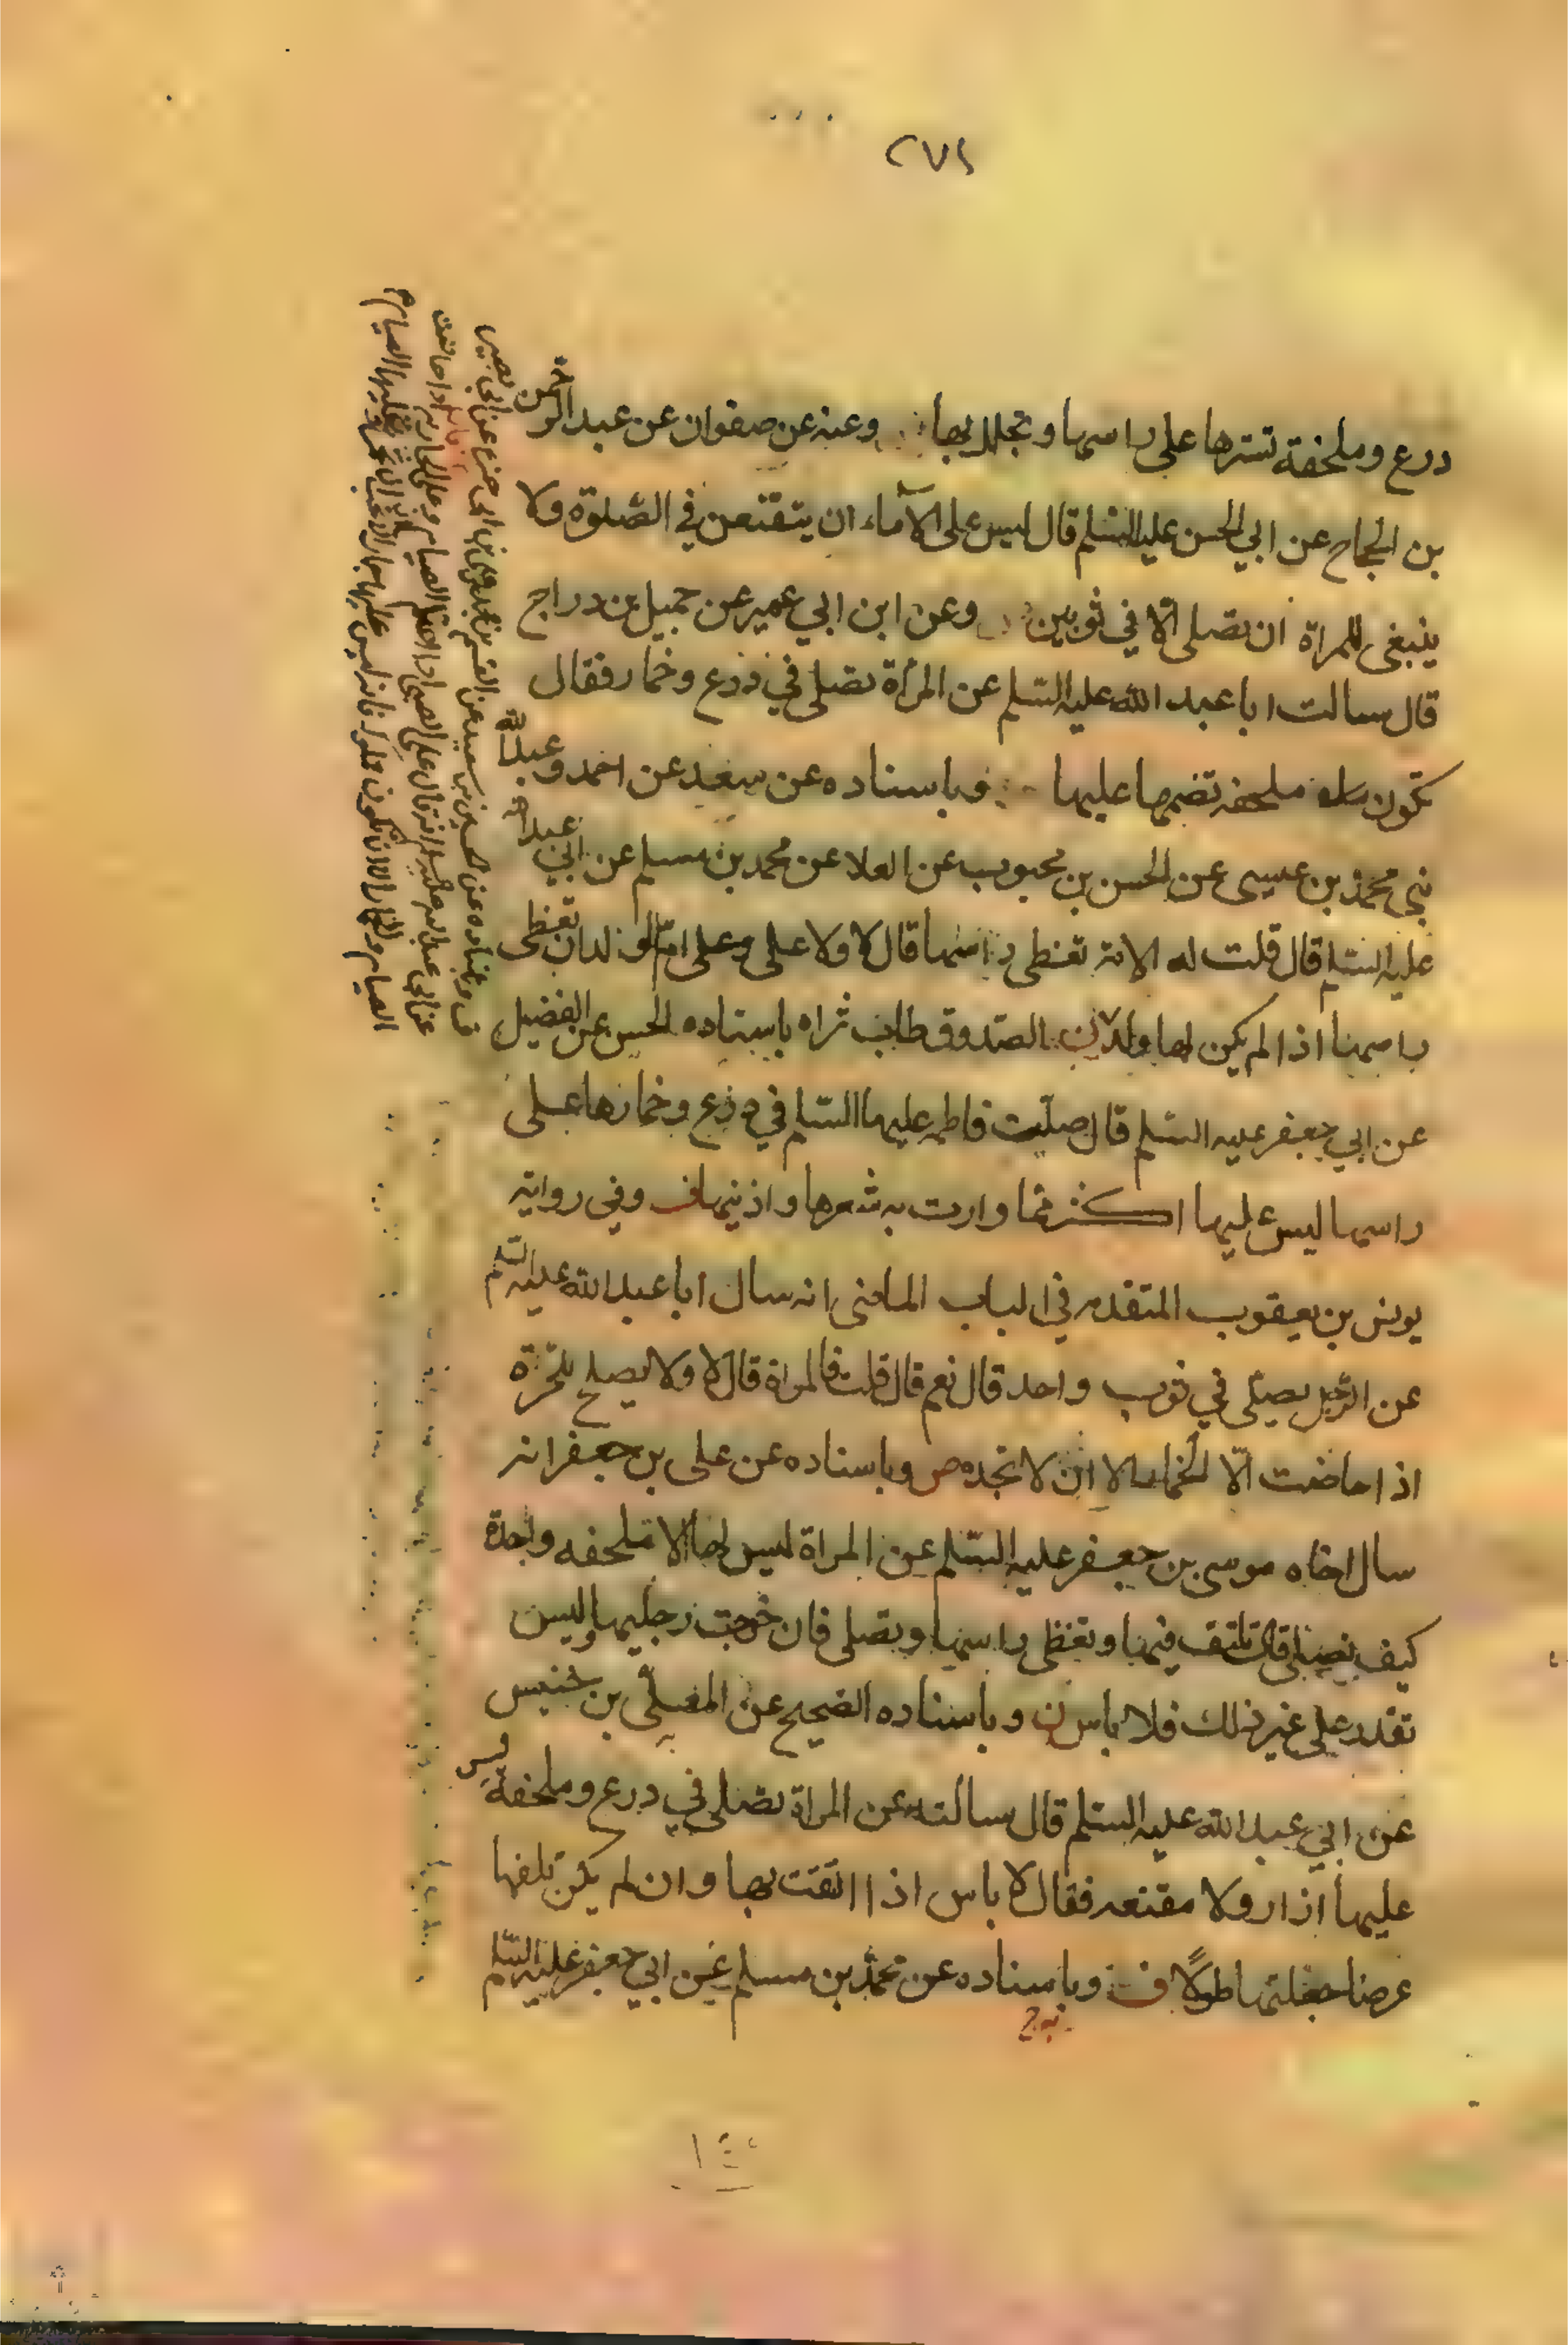 ٢٧١
درع وملحفة تسترها على راسها وتجلل بها وعنه عن صفوان عن عبد الرحمن
بن الحجاج عن ابي الحسن عليه السلم قال ليس على الآماء ان يتقنعن في الصلوة ولا
ينبغى للمراة ان تصلى الا في ثوبين وعن ابن ابي عمير عن جميل بن دراج
قال سالت ابا عبد الله عليه السلم عن المرأة تصلى في درع وخمار فقال
تكون عليها ملحفه تضمها عليها وباسناده عن سعد عن احمد وعبد الله
بني محمد بن عيسى عن الحسن بن محبوب عن العلا عن محمد بن مسلم عن ابي عبد الله
عليه السلم قال قلت له الامة تغطى راسها قال لا ولا على ام الولد ان تغطى
راسها اذا لم يكن لها ولد الصدوق طاب ثراه باسناده عن الفضيل
عن ابي جعفر عليه السلم قال صلت فاطمه عليها السلم في درع وخمارها على
راسها ليس عليها اكثر مما وارت به شعرها واذنيها ف وفي رواية
يونس بن يعقوب المتقدم في الباب الماضى انه سال ابا عبد الله عليه السلم
عن الرجل يصلى في ثوب واحد قال نعم قال قلت فالمراة قال لا ولا يصلح للحرة
اذا حاضت الا الخمار الا ان لا تجده ص وباسناده عن على بن جعفر انه
سال اخاه موسى بن جعفر عليه السلم عن المراة ليس لها الا ملحفه واحدة
كيف تصلى قال تلتف فيها وتغطى راسها وتصلى فان خرجت رجليها وليس
تقدر على غير ذلك فلا باس ن وباسناده الصحيح عن المعلى بن خنيس
عن ابي عبد الله عليه السلم قال سالته عن المراة تصلى في درع وملحفة ليس
عليها ازار ولا مقنعه فقال لا باس اذا التفت بها وان لم يكن تكفها
عرضا جعلتها طولا ف وباسناده عن محمد بن مسلم عن ابي جعفر عليه السلم
عن الحسين بن سعيد عن القسم بن محمد عن ابي بصير
عن ابي عبد الله عليه السلم انه قال على الصبى اذا احتلم الصيام وعلى الجارية اذا حاضت
الصيام والخمار الا ان تكون مملوكة فانه ليس عليها خمار الا ان تحب ان تختمر وعليها الصيام